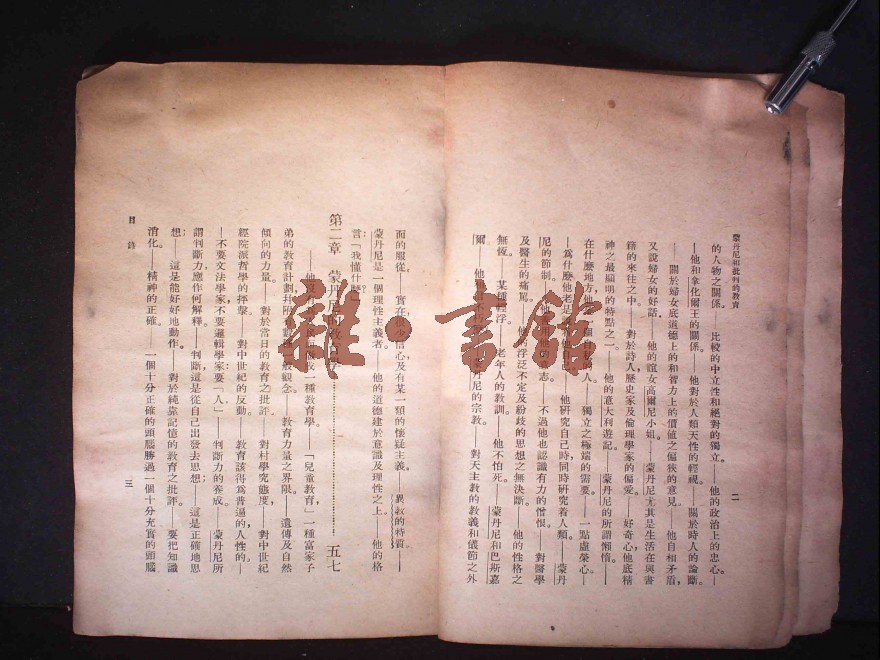 蒙丹尼和批判的教育
的人物之關係。 比較的中立性和絕對的獨立。——他的政治上的忠心。——
他和拿化爾王的關係。——他對於人類天性的輕視。 關於時人的論斷。
——關於婦女底道德上的和智力上的價值之偏狹的意見。——他自相矛盾,
又說婦女的好話。 他的誼女高爾尼小姐。——蒙丹尼尤其是生活在與書
籍的來往之中。——對於詩人,歷史家及倫理學家的偏愛。——好奇心,他底精
神之最顯明的特點之一。——他的意大利遊記。——蒙丹尼的所謂懶惰。——
在什麼地方他 人。——獨立之極端的需要。——一點虛榮心。——
爲什麼他老是 他自己。——他研究自己時同時研究着人類。——蒙丹
尼的節制。 志。——不過他也認識有力的憎恨。——對醫學
及醫生的痛罵。 浮泛不定及紛歧的思想之無決斷。——他的性格之
無恆。——某種輕浮。——老年人的教訓。——他不怕死。——蒙丹尼和巴斯嘉
爾。 蒙丹尼的宗教。——對天主教的教義和儀節之外
二
面的服從。——實在很少信心,及有某一類的懷疑主義。——異教的特質。——
蒙丹尼是一個理性主義者。——他的道德建於意識及理性之上。——他的格
言:「我懂什麼」
第二章 蒙丹尼的教育學……五七
——他沒有 成一種教育學。——「兒童教育」,一種富家子
弟的教育計劃并附有 一般觀念。——教育力量之界限。——遺傳及自然
傾向的力量。——對於當日的教育之批評。——對村學究態度,——對中世紀
經院派哲學的抨擊。——對中世紀的反動。——教育該得爲普通的,人性的。——
——不要文法學家,不要邏輯學家:要「人」。——判斷力的養成。——蒙丹尼所
謂判斷力應作何解釋。——判斷,這是從自己出發去思想: 這是正確地思
想: 這是能好好地動作。——對於純靠記憶的教育之批評。 要把知識
消化。——精神的正確。——一個十分正確的頭腦勝過一個十分充實的頭腦
目錄
三
雜·書館